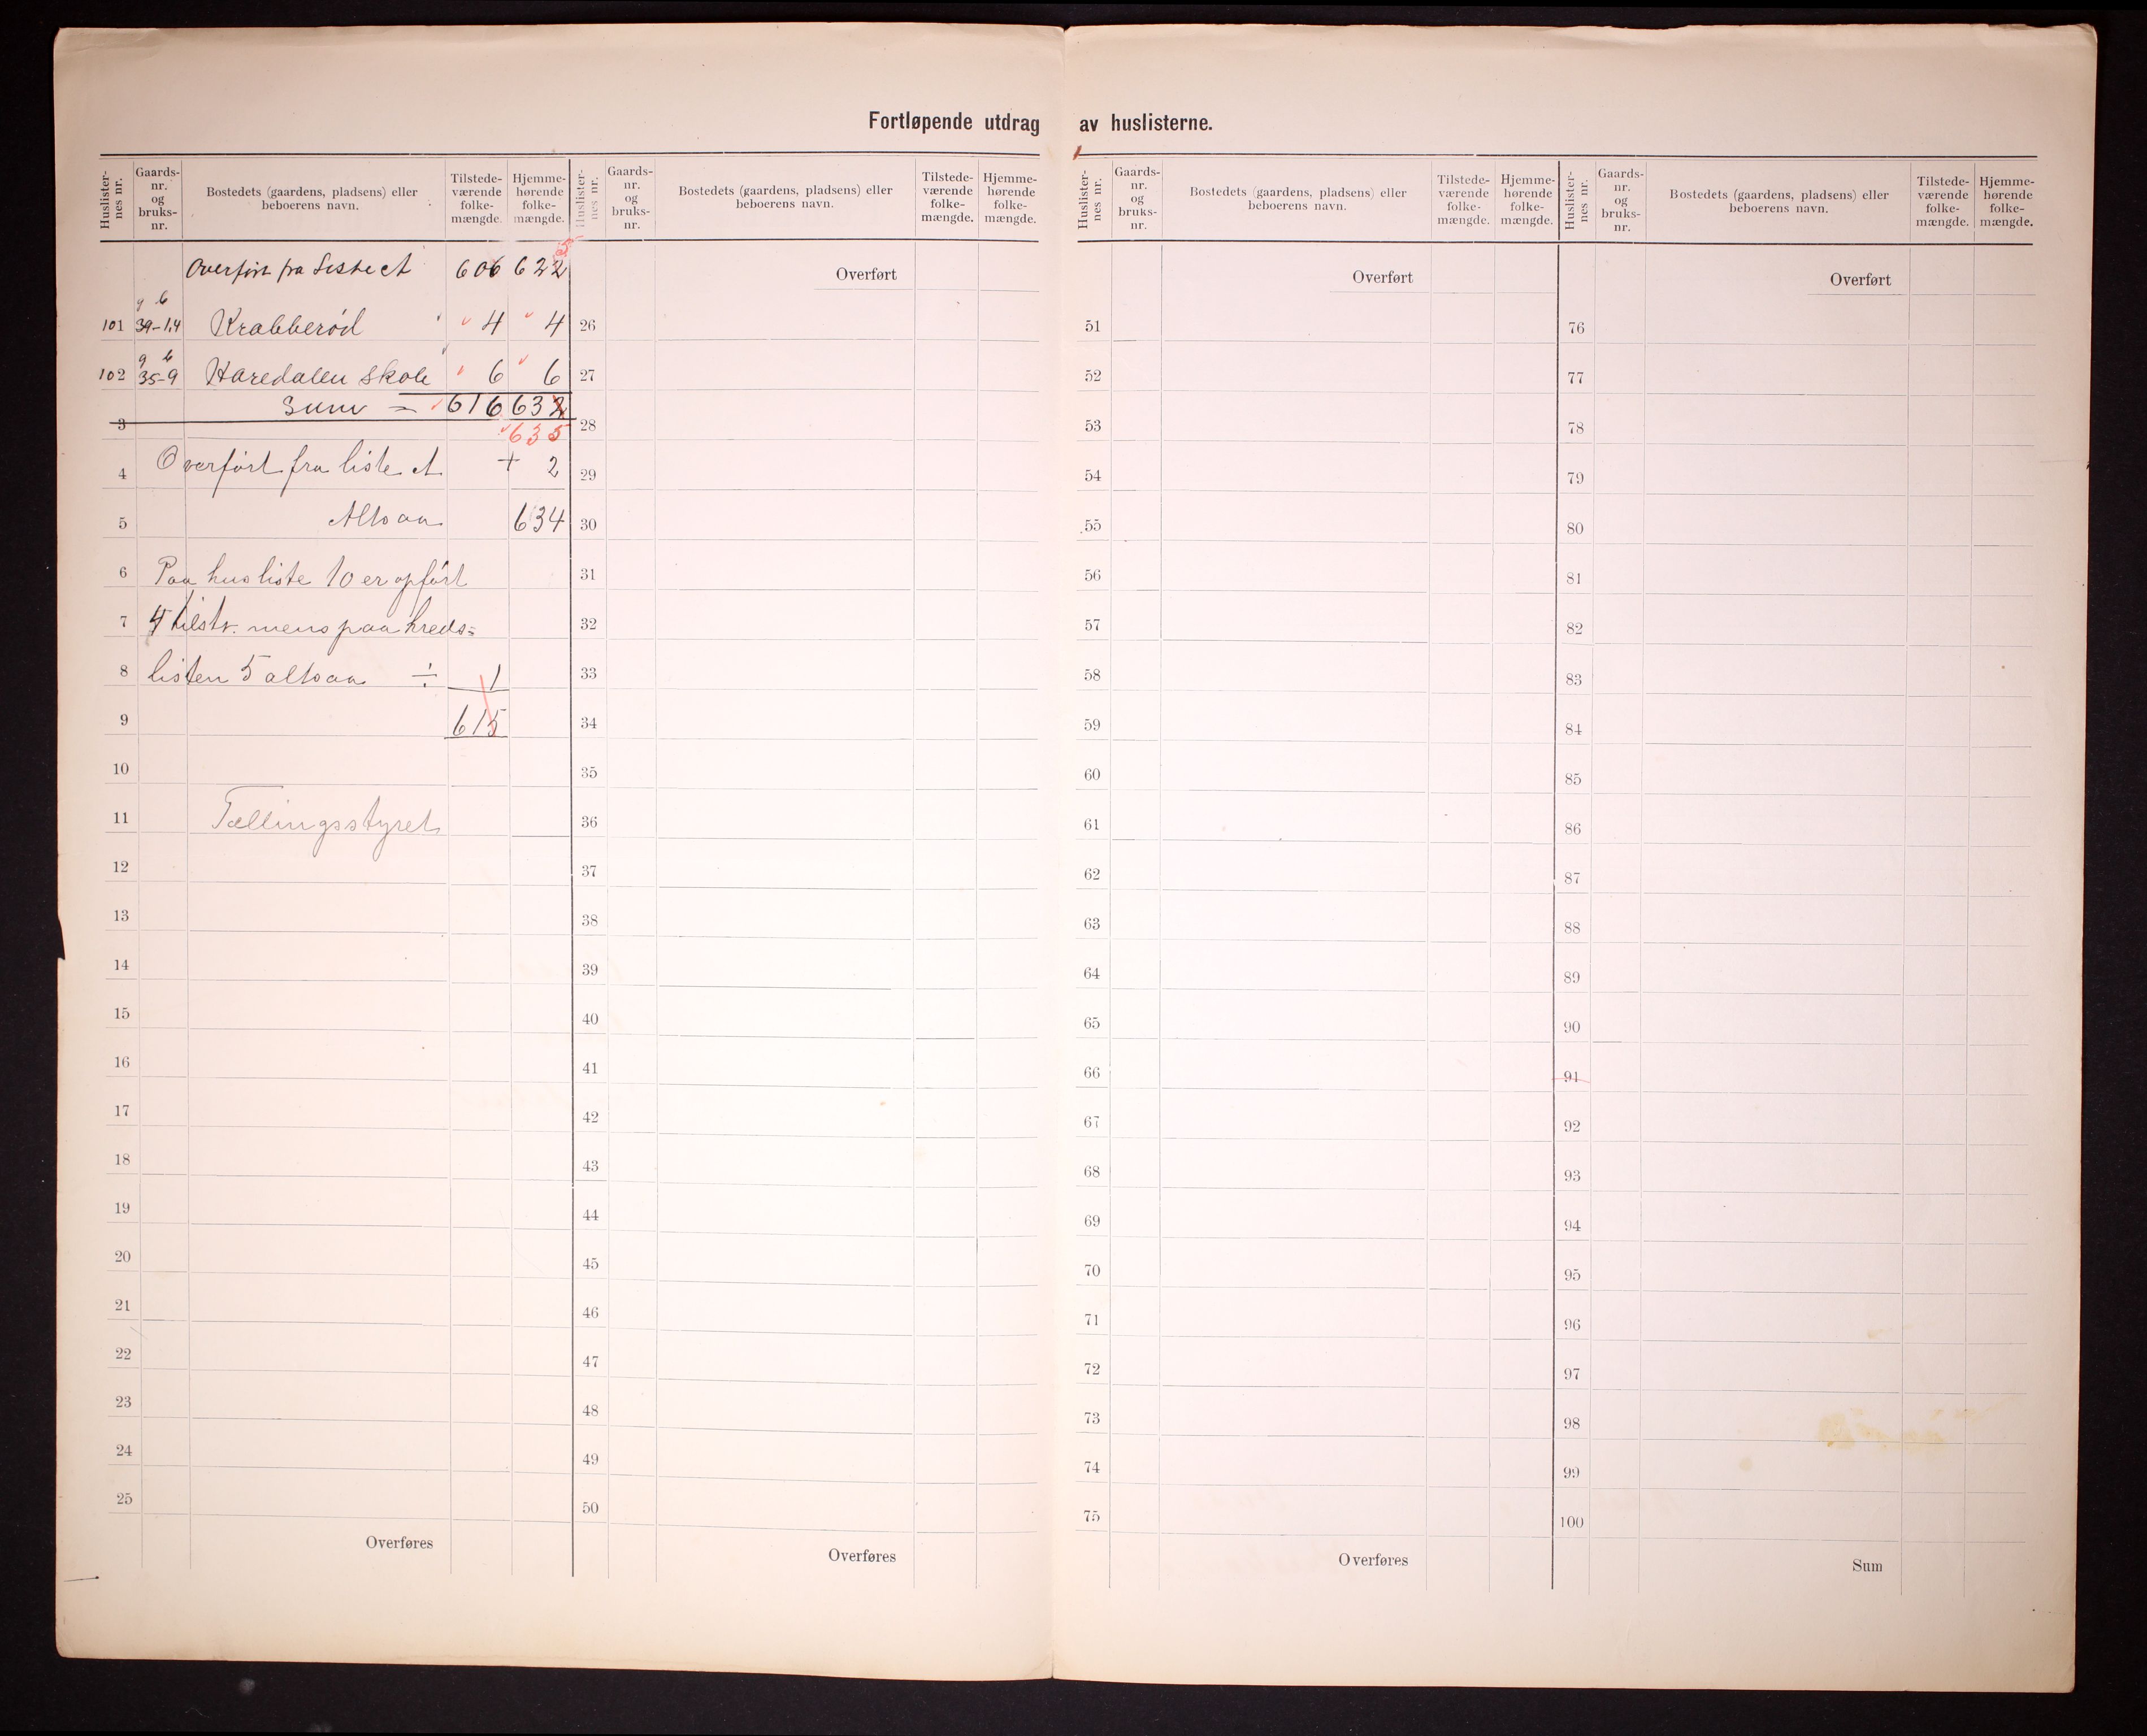 Fortløpende utdrag av huslisterne.
Huslisternes nr. Gaards-nr. og bruks-nr. Bostedets (gaardens, pladsens) eller beboerens navn. Tilstedeværende folkemængde. Hjemmehørende folkemængde.
Huslisternes nr. Gaards-nr. og bruks-nr. Bostedets (gaardens, pladsens) eller beboerens navn. Tilstedeværende folkemængde. Hjemmehørende folkemængde.
Huslisternes nr. Gaards-nr. og bruks-nr. Bostedets (gaardens, pladsens) eller beboerens navn. Tilstedeværende folkemængde. Hjemmehørende folkemængde.
Huslisternes nr. Gaards-nr. og bruks-nr. Bostedets (gaardens, pladsens) eller beboerens navn. Tilstedeværende folkemængde. Hjemmehørende folkemængde.
Overført fra Liste A 606 622
g b
101 39-14 Krabberød 4 4
g b
102 35-9 Haredalen skole 6 6
Sum = 616 632
3 635
4 Overført fra liste A + 2
5 Altsaa 634
6 Paa husliste 10 er opført
7 4 tilst. mens paa kreds=
8 listen 5 altsaa ÷ 1
9 615
10
11 Tællingsstyret
12
13
14
15
16
17
18
19
20
21
22
23
24
25
Overføres
Overført
26
27
28
29
30
31
32
33
34
35
36
37
38
39
40
41
42
43
44
45
46
47
48
49
50
Overføres
Overført
51
52
53
54
55
56
57
58
59
60
61
62
63
64
65
66
67
68
69
70
71
72
73
74
75
Overføres
Overført
76
77
78
79
80
81
82
83
84
85
86
87
88
89
90
91
92
93
94
95
96
97
98
99
100
Sum